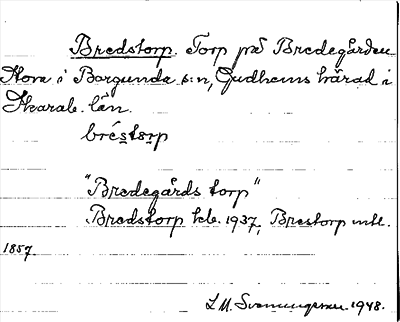 Bredstorp. Torp på Bredegården
Stora i Borgunda s:n, Gudhems härad i
Skarab. län.
bréstorp
"Bredegårds torp"
Bredstorp kb. 1937, Brestorp mtl.
1857.
L.M. Svenungsson 1948.